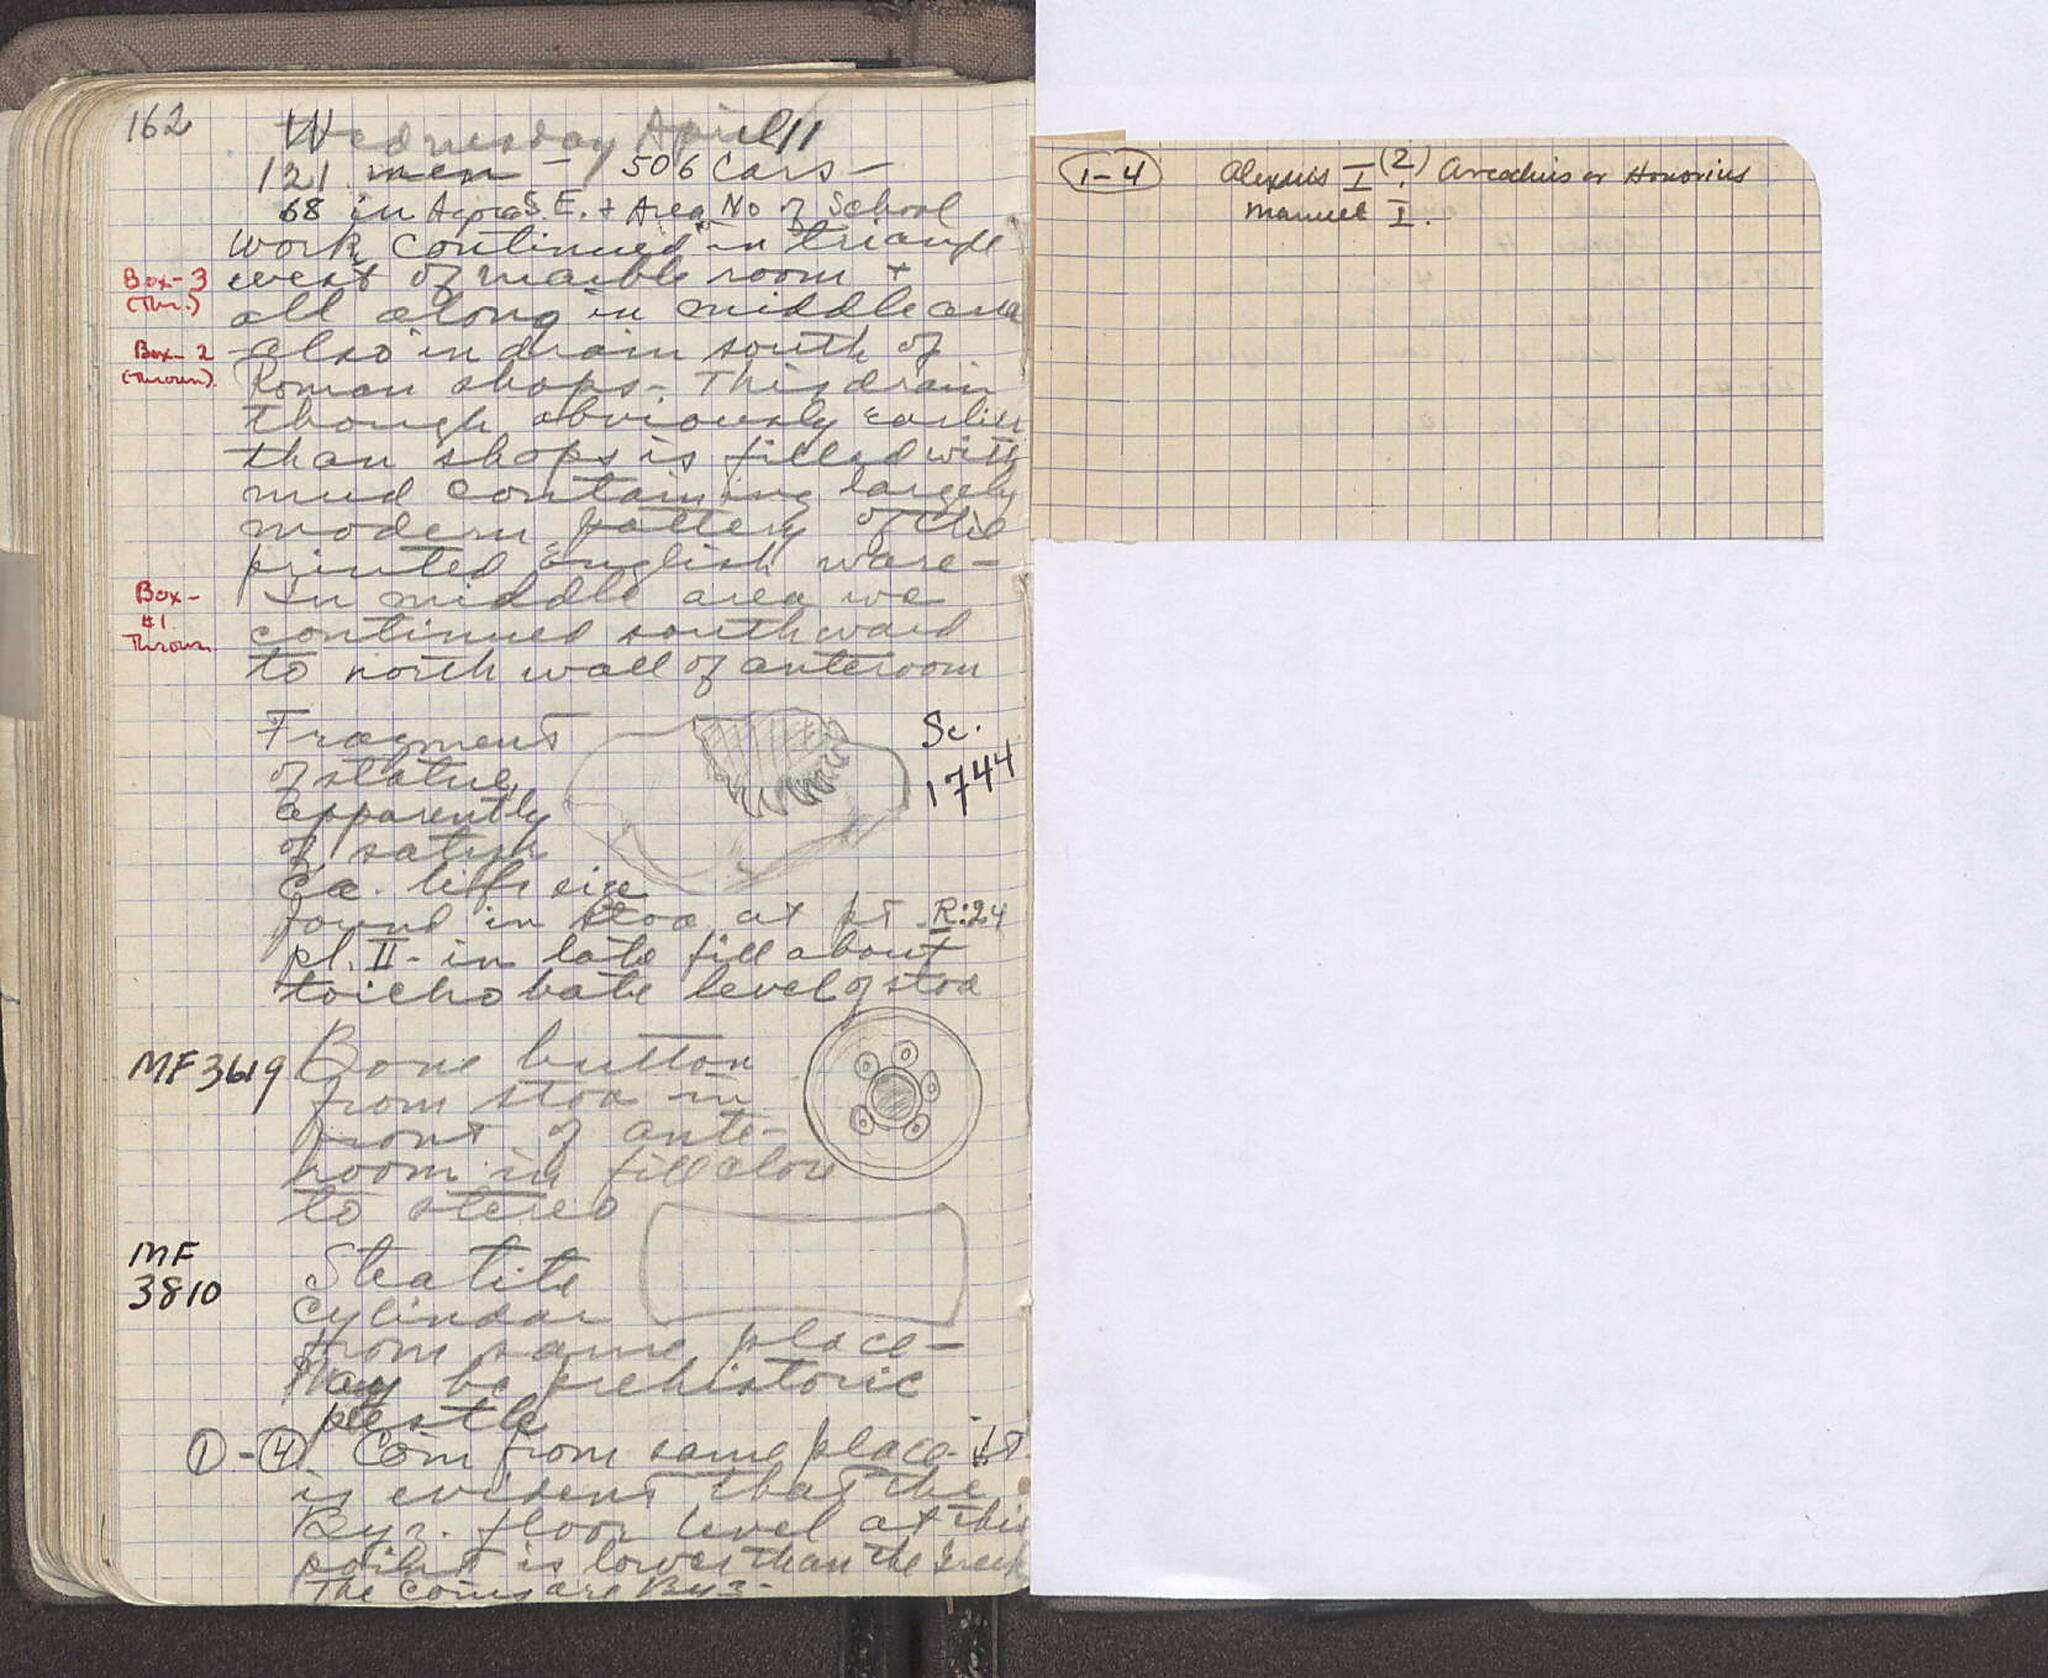 162
Wednesday April 11
121 men - 506 Cars -
68 in Agora S.E. + Area No of School
Work continued in triangle
Box-3
(Thr.)
west of marble room +
all along in middle area
Box-2
(Thrown)
also in drain south of
Roman shops - This drain
though obviously earlier
than shops is filled with
mud containing largely
modern pottery of the
printed English ware -
Box-
#1
Thrown
In middle area we
continued southward
to north wall of anteroom
Fragment
of statue,
apparently
of satyr
Ca. life size
Sc.
1744
found in stoa at pt R:24
pl. II - in late fill about
toichobate level of stoa
MF 3619
Bone button
from stoa in
front of ante-
room in fill close
to stereo
MF
3810
Steatite
cylinder
from same place -
May be prehistoric
pestle
1 - 4. Coin from same place. It
is evident that the
Byz. floor level at this
point is lower than the Greek
The coins are Byz -
1-4 Alexius I (2). Arcadius or Honorius
Manuel I.